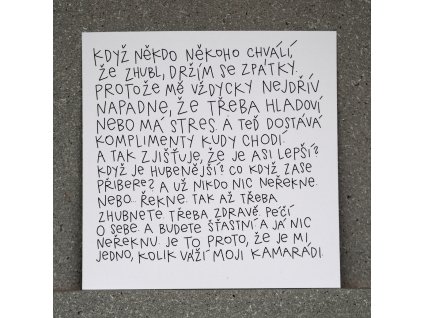 KDYŽ NĚKDO NĚKOHO CHVÁLÍ,
ŽE ZHUBL, DRŽÍM SE ZPÁTKY.
PROTOŽE MĚ VŽDYCKY NEJDŘÍV
NAPADNE, ŽE TŘEBA HLADOVÍ
NEBO MÁ STRES. A TEĎ DOSTÁVÁ
KOMPLIMENTY KUDY CHODÍ.
A TAK ZJIŠŤUJE, ŽE JE ASI LEPŠÍ?
KDYŽ JE HUBENĚJŠÍ? CO KDYŽ ZASE
PŘIBERE? A UŽ NIKDO NIC NEŘEKNE.
NEBO ŘEKNE. TAK AŽ TŘEBA
ZHUBNETE TŘEBA ZDRAVĚ. PEČÍ
O SEBE. A BUDETE ŠŤASTNÍ A JÁ NIC
NEŘEKNU. JE TO PROTO, ŽE JE MI
JEDNO, KOLIK VÁŽÍ MOJI KAMARÁDI.